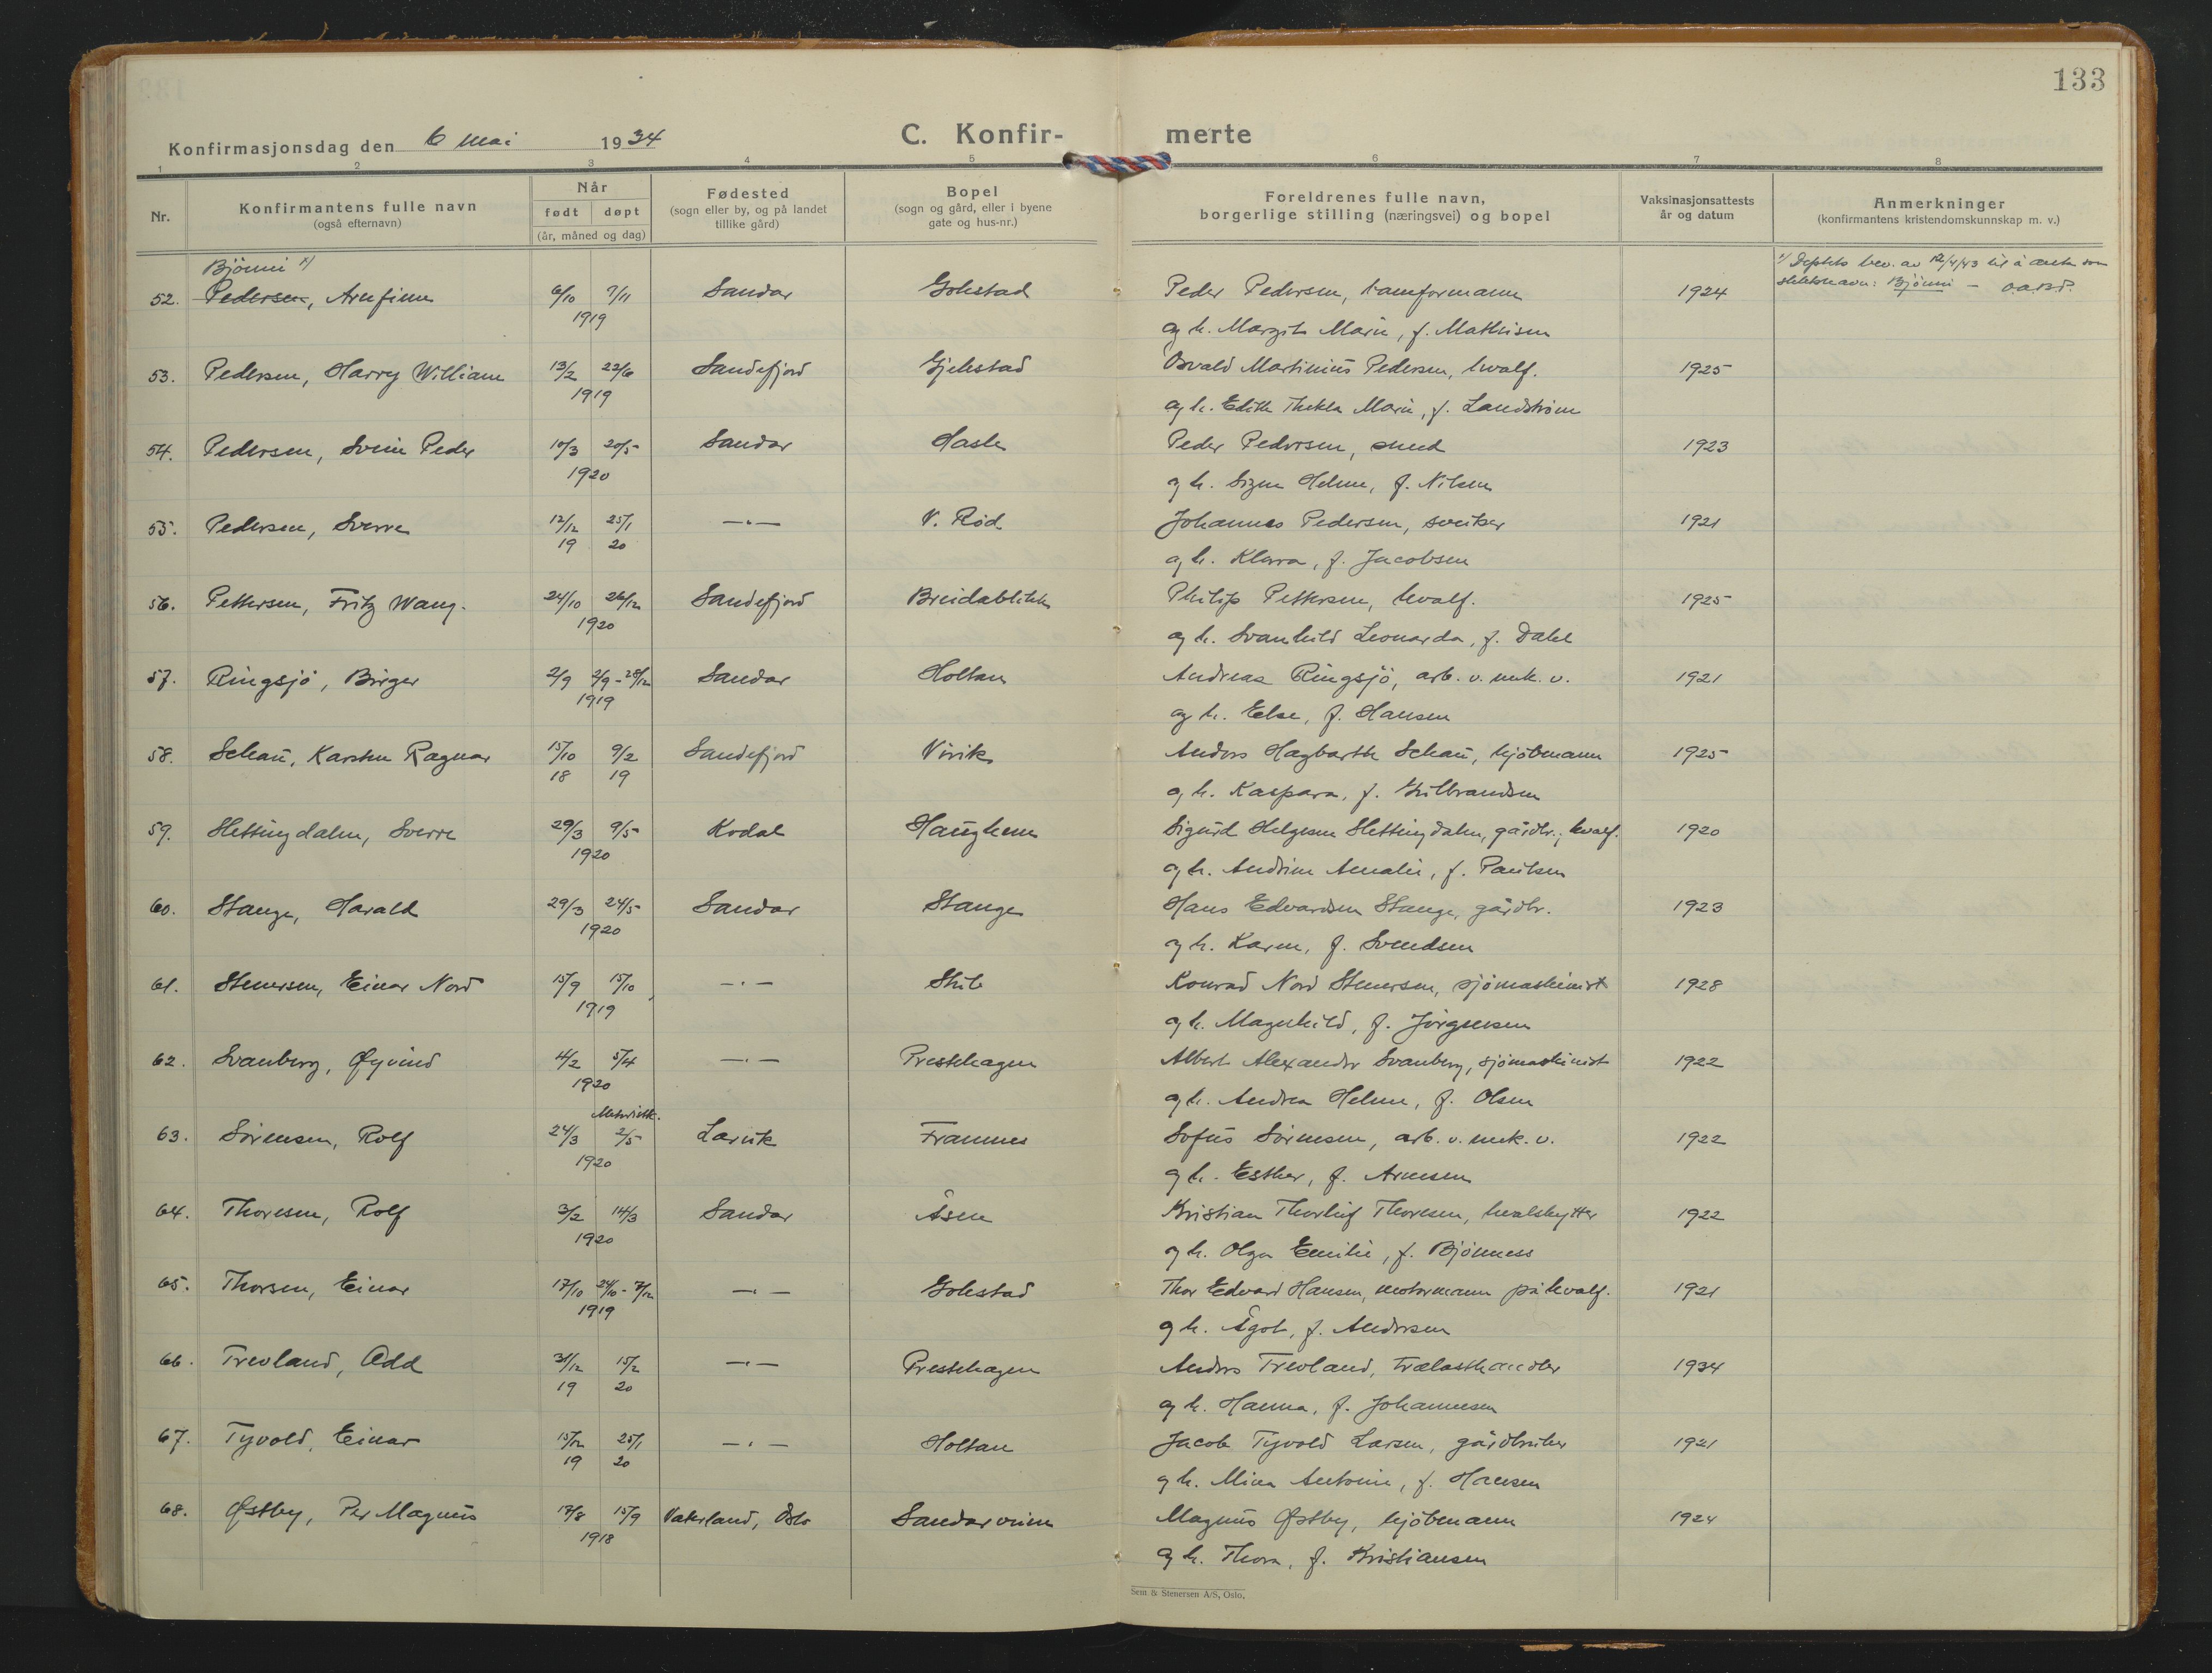 133
Konfirmasjonsdag den 6 mai 1934
C. Konfir- merte
1 2 3 4 5 6 7 8
Nr. Konfirmantens fulle navn (også efternavn) Når født døpt (år, måned og dag) Fødested (sogn eller by, og på landet tillike gård) Bopel (sogn og gård, eller i byene gate og hus-nr.) Foreldrenes fulle navn, borgerlige stilling (næringsvei) og bopel Vaksinasjonsattests år og datum Anmerkninger (konfirmantens kristendomskunnskap m. v.)
Bjönni 1) 1) Deptets bev. av 12/4/43 til å anta som
52. Pedersen, Arnfinn 6/10 9/11 Sandar Gokstad Peder Pedersen, 1924 slektsnavn: Bjönni —
1919 og h. Margit Marie, f. Mathisen
53. Pedersen, Harry William 13/2 22/6 Sandefjord Gjekstad Osvald Martinius Pedersen, hvalf. 1925
1919 og h. Edith Thekla Marie, f. Landström
54. Pedersen, Svein Peder 10/3 20/5 Sandar Hasle Peder Pedersen, smed 1923
1920 og h. Signe Helene, f. Nilsen
55. Pedersen, Sverre 12/12 25/1 —"— V. Röd Johannes Pedersen, snekker 1921
19 20 og h. Klara, f. Jacobsen
56. Pettersen, Fritz Wang. 24/10 26/12 Sandefjord Breidablikk Philip Pettersen, hvalf. 1925
1920 og h. Svanhild Leonarda, f. Dahl
57. Ringsjö, Birger 2/9 2/9 - 28/12 Sandar Holtan Andreas Ringsjö, arb. v. mek. v. 1921
1919 og h. Else, f. Hansen
58. Schau, Karsten Ragnar 15/10 9/2 Sandefjord Virik Anders Hagbarth Schau, kjöbmann 1925
18 19 og h. Kaspara, f. Gulbrandsen
59. Slettingdalen, Sverre 29/3 9/5 Kodal Haughem Sigurd Helgesen Slettingdalen, gårdbr., hvalf. 1920
1920 og h. Andrine Amalie, f. Paulsen
60. Stange, Harald 29/3 24/5 Sandar Stange Hans Edvardsen Stange, gårdbr. 1923
1920 og h. Karen, f. Svendsen
61. Stenersen, Einar Nord 15/9 15/10 —"— Stub Konrad Nord Stenersen, sjömaskinist 1928
1919 og h. Magnhild, f. Jörgensen
62. Svanberg, Øyvind 4/2 5/4 —"— Prestehagen Albert Alexander Svanberg, sjömaskinist 1922
1920 og h. Andrea Helene, f. Olsen
Methodistk.
63. Sörensen, Rolf 24/3 2/5 Larvik Framnes Sofus Sörensen, arb. v. mek. v. 1922
1920 og h. Esther, f. Arnesen
64. Thoresen, Rolf 3/2 14/3 Sandar Åsen Kristian Thorleif Thoresen, hvalskytter 1922
1920 og h. Olga Emilie, f. Bjönness
65. Thorsen, Einar 17/10 24/10 - 7/12 —"— Gokstad Thor Edvard Hansen, motormann på hvalf. 1921
1919 og h. Ågot, f. Andersen
66. Trevland, Odd 31/12 15/2 —"— Prestehagen Anders Trevland, trælasthandler 1934
19 20 og h. Hanna, f. Johannesen
67. Tyvold, Einar 15/12 25/1 —"— Holtan Jacob Tyvold Larsen, gårdbruker 1921
19 20 og h. Mina Antonie, f. Hansen
68. Østby, Per Magnus 17/8 15/9 Vaterland, Oslo Sandarvirim Magnus Østby, kjöbmann 1924
1918 og h. Thora, f. Kristiansen
Sem & Stenersen A/S, Oslo.